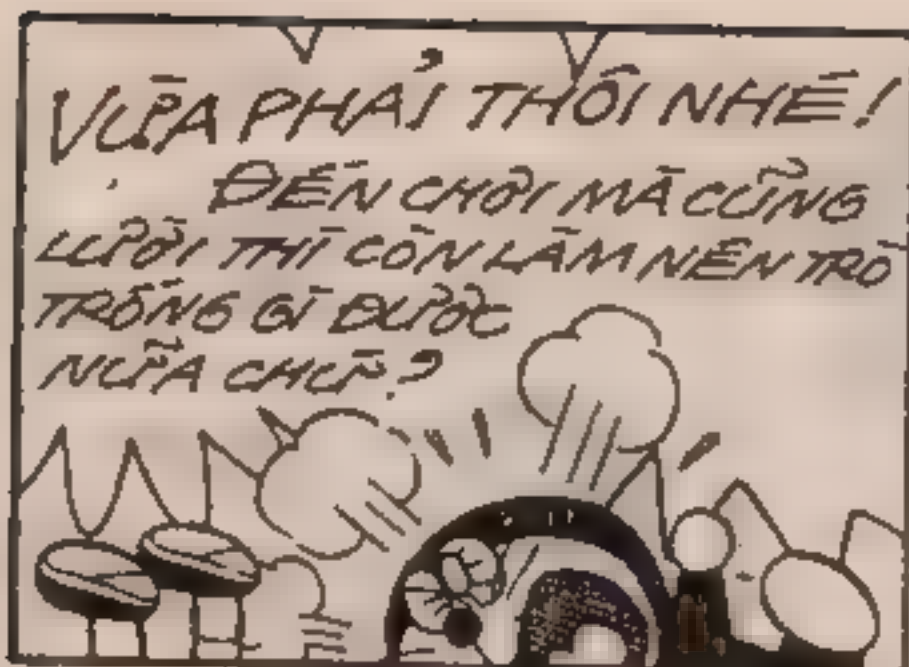 VỪA PHẢI THÔI NHÉ!
ĐẾN CHƠI MÀ CŨNG
LƯỜI THÌ CÒN LÀM NÊN TRÒ
TRỐNG GÌ ĐƯỢC
NỮA CHỨ?